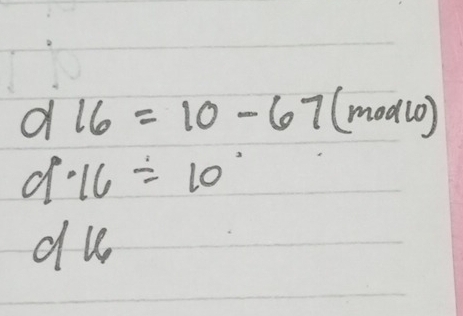 d16 = 10 - 67 (mod10)
d·16 ÷ 10
d16